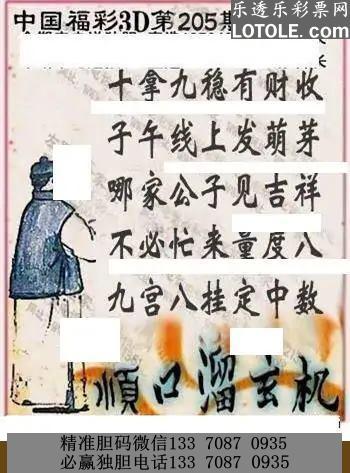 中国福彩3D第205期
乐透乐彩票网
LOTOLE.COM
十拿九稳有财收
子午线上发萌芽
哪家公子见吉祥
不必忙来量度八
九宫八挂定中数
順口溜玄机
精准胆码微信133 7087 0935
必赢独胆电话133 7087 0935